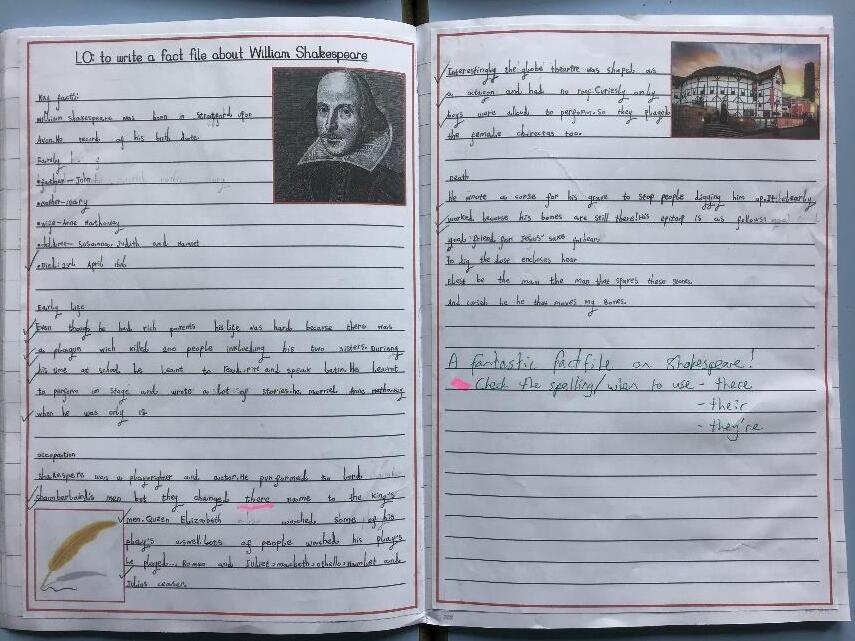 LO: to write a fact file about William Shakespeare
Key facts:
William Shakespeare was born in Stratford upon
Avon.No record of his birth date.
Family
•father-John
•mother-mary
•wife-Anne Hathaway
Susannah Judith and Hamnet
•Died:23th April 1616
Early life
Even though he had rich parents his life was hard because there was
a plaugun wich killed 200 people inklueding his two sisters.Dureing
his time at school he leant to read,rite and speak latin.He learnt
to perform on stage and wrote a lot of stories.he married Anne Hathaway
when he was only 18.
occupation
Shakespere was a playrighter and auctor.He purformed to lord
chamberlaind's men but they changed there name to the King's
men.Queen Elizabeth watched some of his
play's aswell.lots of people watched his play's
he played... Romeo and Juliet,macbeth,othello,Hamlet and
Julios ceaser.
Interestingly the globe theartre was shaped as
a octagon and had no roof.Curiesly only
boys were aloud to perform.So they played
the female chirectas too.
Death
He wrote a corse for his grave to stop people digging him up.It clearly
worked because his bones are still there!His epitaf is as follows:
good friend for Jesus' sake forbear,
To dig the dose encloses hear
Blest be the man the man that spares these stones.
And cursed be he that moves my bones.
A fantastic factfile on Shakespeare!
Check the spelling/when to use - there
- their
- they're